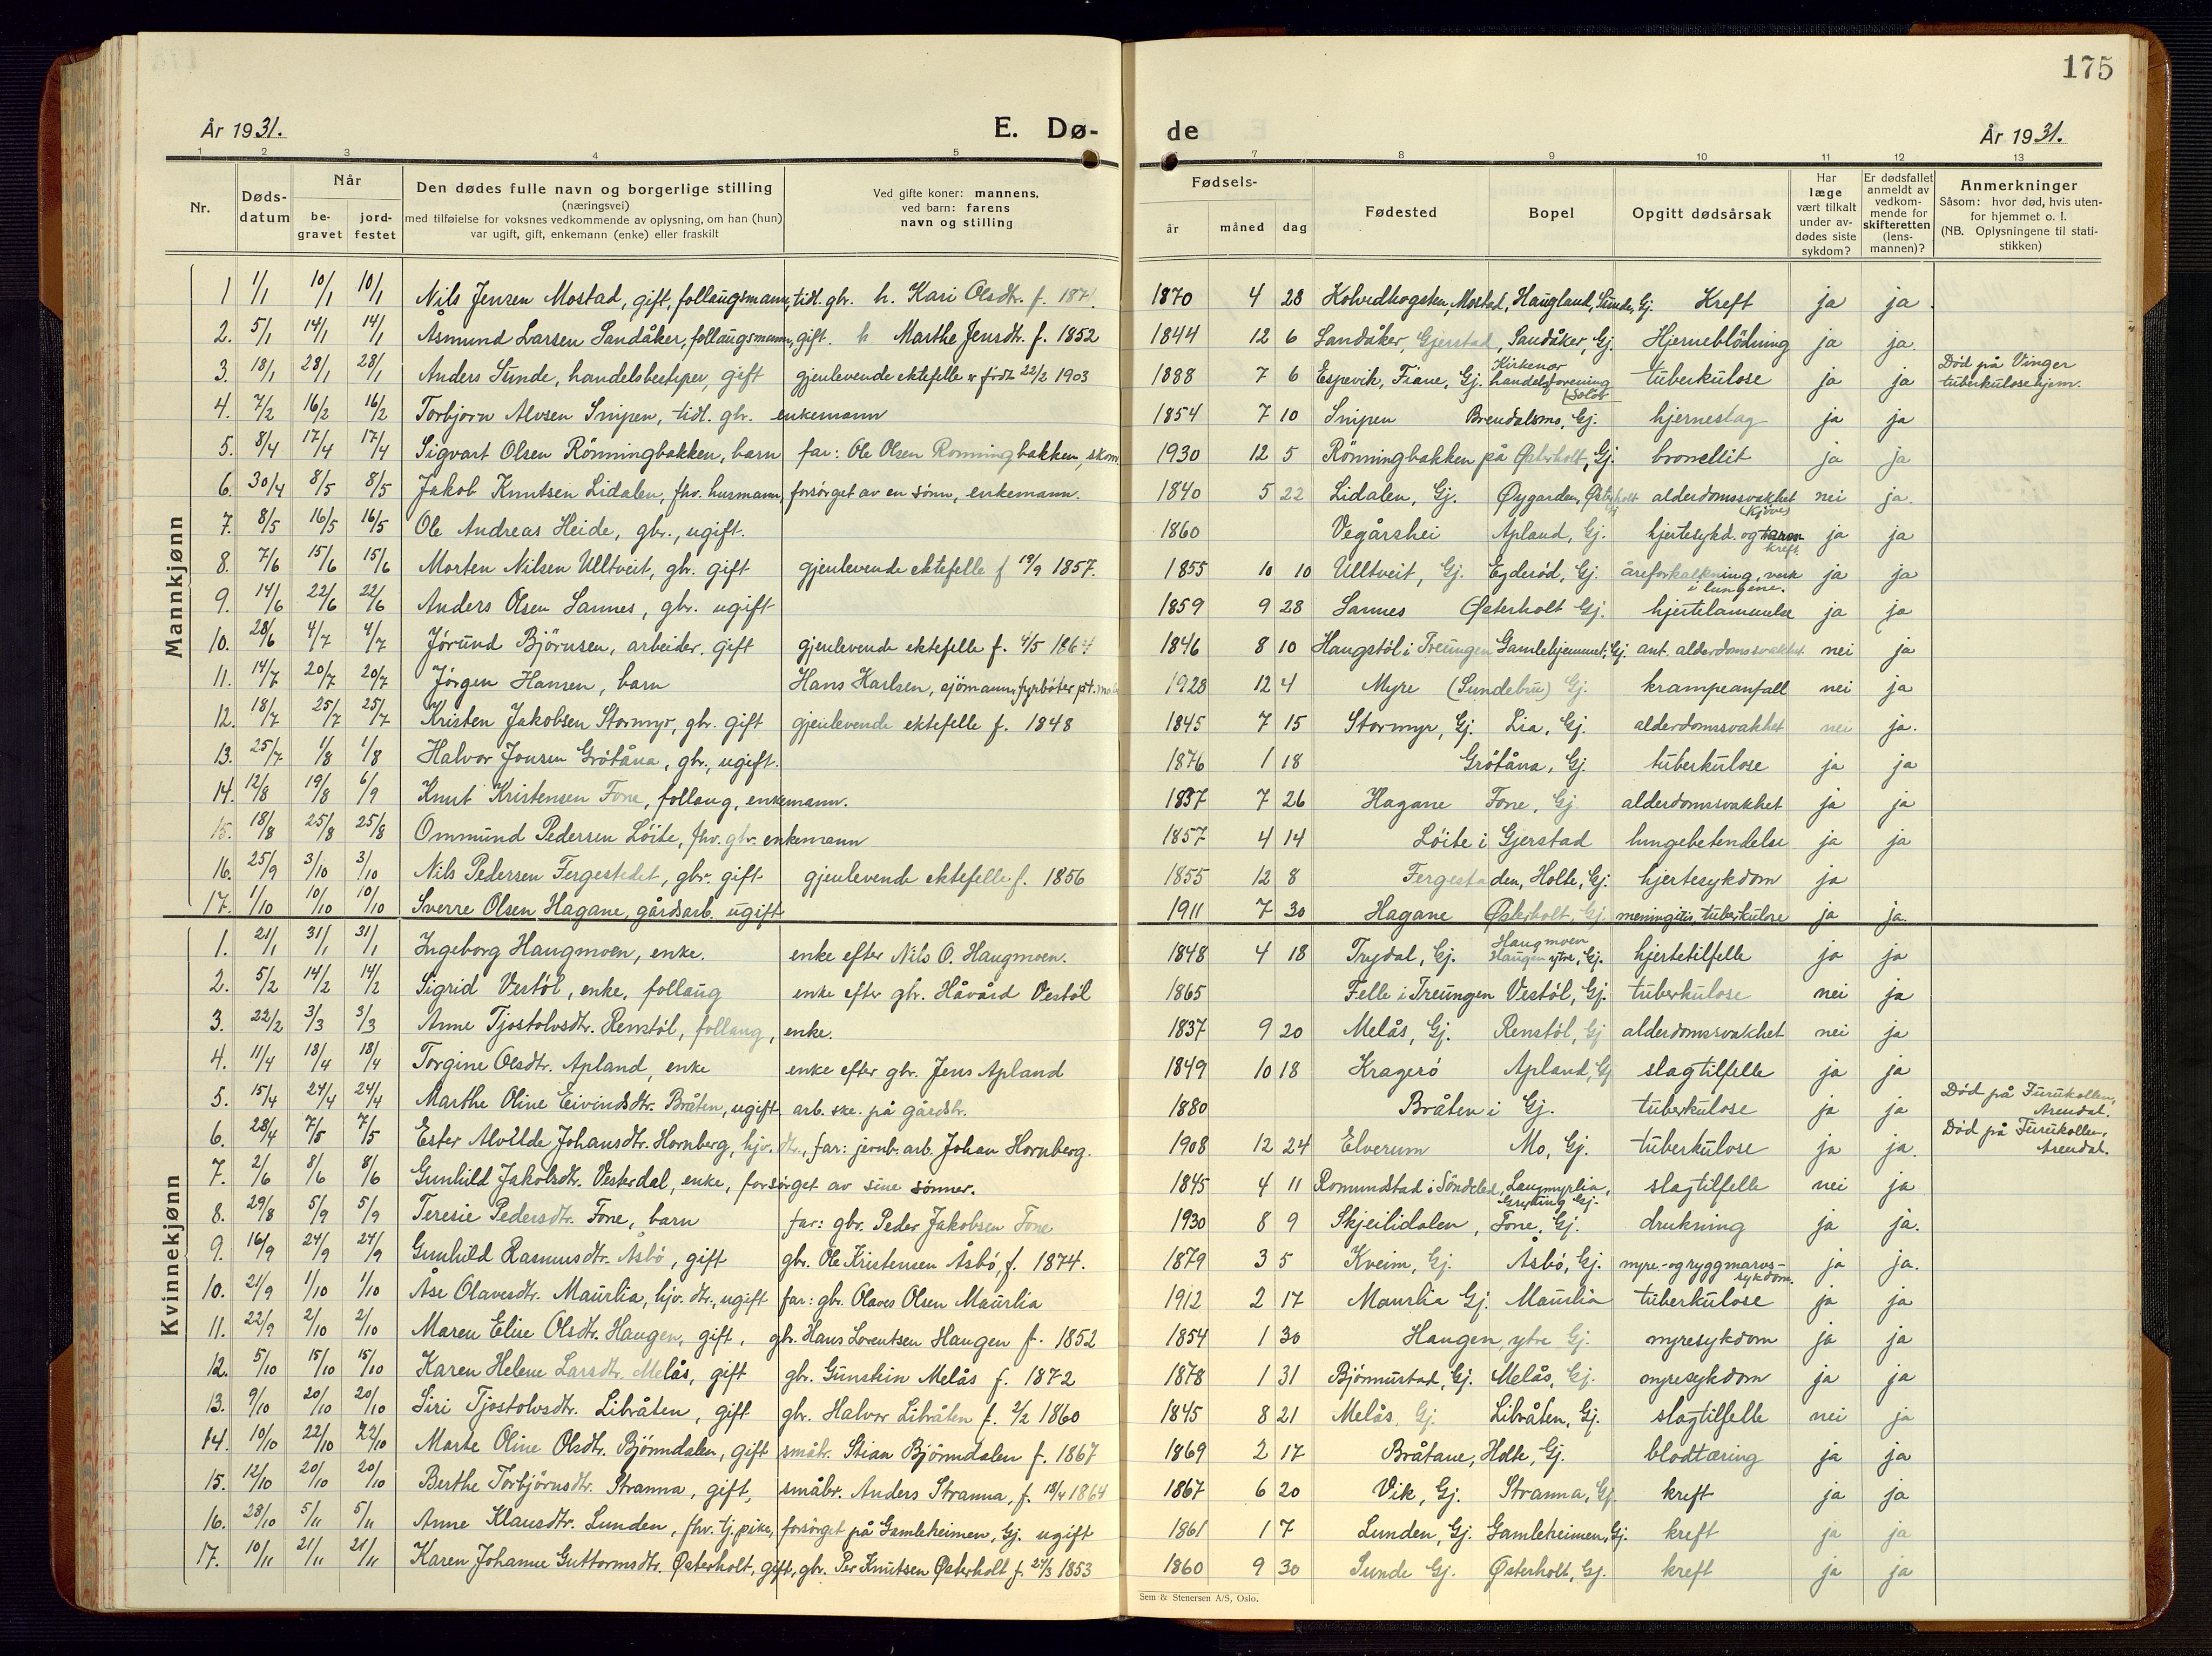 175
År 1931.
E. Dø-
de
År 1931.
1 2 3 4 5 6 7 8 9 10 11 12 13
Nr.
Døds-datum
Når
be-gravet
jord-festet
Den dødes fulle navn og borgerlige stilling
(næringsvei)
med tilføielse for voksnes vedkommende av oplysning, om han (hun)
var ugift, gift, enkemann (enke) eller fraskilt
Ved gifte koner: mannens,
ved barn: farens
navn og stilling
Fødsels-
år måned dag
Fødested
Bopel
Opgitt dødsårsak
Har læge vært tilkalt under av-dødes siste sykdom?
Er dødsfallet anmeldt av vedkom-mende for skifteretten (lens-mannen)?
Anmerkninger
Såsom: hvor død, hvis uten-
for hjemmet o. l.
(NB. Oplysningene til stati-
stikken)
Mannkjønn
1 1/1 10/1 10/1 Nils Jensen Mostad, gift, follaugsmann, tidl. gbr. h. Kari Olsdtr. f. 1870 4 28 Mostad, Haugland, Sunde, Gj. Kreft ja ja.
2. 5/1 14/1 14/1 Åsmund Larsen Sandåker, follaugsmann, gift. h Marthe Jensdtr. f. 1852 1844 12 6 Sandåker, Gjerstad, Sandåker, Gj. Hjerneblödning ja ja.
3. 18/1 28/1 28/1 Anders Sunde, handelsbestyrer, gift gjenlevende ektefelle er født 22/2 1903 1888 7 6 Espevik, Fiane, Gj. Kirkenær handelsforening Solør tuberkulose ja ja Död på Vinger tuberkulosehjem.
4. 7/2 16/2 16/2 Torbjørn Alvsen Snipen, tidl. gbr. enkemann 1854 7 10 Snipen Brendalsmo, Gj. hjerneslag ja ja
5. 8/4 17/4 17/4 Sigvart Olsen Rönningbakken, barn far: Ole Olsen Rönningbakken, skom 1930 12 5 Rönningbakken på Østerholt, Gj. bronchit ja ja
6. 30/4 8/5 8/5 Jakob Knutsen Lidalen, fhv. husmann, forsörget av en sönn, enkemann. 1840 5 22 Lidalen, Gj. Øygarden, Østerholt Gj alderdomssvakhet nei ja.
7. 8/5 16/5 16/5 Ole Andreas Heide, gbr., ugift. 1860 Vegårshei Apland, Gj. hjertesykd. og kreft ja ja
8. 7/6 15/6 15/6 Morten Nilsen Ulltveit, gbr. gift gjenlevende ektefelle f 19/9 1857. 1855 10 10 Ulltveit, Gj. Egderöd, Gj. åreforkalkning, verk i lungene. ja ja
9. 14/6 22/6 22/6 Anders Olsen Sannes, gbr. ugift 1859 9 28 Sannes Østerholt Gj. hjertelammelse ja ja
10. 28/6 4/7 4/7 Jörund Björnsen, arbeider. gift gjenlevende ektefelle f. 4/5 1864 1846 8 10 Haugstöl i Treungen Gamlehjemmet, Gj. ant. alderdomssvakhet nei ja
11. 14/7 20/7 20/7 Jörgen Hansen, barn Hans Karlsen, sjömann, fyrböter 1928 12 4 Myre (Sundebru) Gj. krampeanfall nei ja
12. 18/7 25/7 25/7 Kristen Jakobsen Stormyr, gbr. gift gjenlevende ektefelle f. 1848 1845 7 15 Stormyr, Gj. Lia, Gj. alderdomssvakhet nei ja.
13. 25/7 1/8 1/8 Halvor Jonsen Grötåna, gbr., ugift. 1876 1 18 Grötåna, Gj. tuberkulose ja ja
14. 12/8 19/8 6/9 Knut Kristensen Fone, follaug, enkemann. 1837 7 26 Hagane Fone, Gj. alderdomssvakhet ja ja
15. 18/8 25/8 25/8 Ommund Pedersen Löite, fhv. gbr. enkemann 1857 4 14 Löite i Gjerstad lungebetendelse ja ja
16. 25/9 3/10 3/10 Nils Pedersen Fergestedet, gbr. gift gjenlevende ektefelle f. 1856 1855 12 8 Fergestaden, Holte, Gj. hjertesykdom ja
17. 1/10 10/10 10/10 Sverre Olsen Hagane, gårdsarb. ugift 1911 7 30 Hagane Østerholt, Gj. meningitis, tuberkulose ja ja.
Kvinnekjønn
1. 21/1 31/1 31/1 Ingeborg Haugmoen, enke. enke efter Nils O. Haugmoen. 1848 4 18 Trydal, Gj. Haugmoen Haugen ytre, Gj. hjertetilfelle ja ja
2. 5/2 14/2 14/2 Sigrid Vestöl, enke, follaug enke efter gbr. Håvård Vestöl 1865 Felle i Treungen Vestöl, Gj. tuberkulose nei ja
3. 22/2 3/3 3/3 Anne Tjostolvsdtr. Renstöl, follaug, enke. 1837 9 20 Melås, Gj. Renstöl, Gj alderdomssvakhet nei ja
4. 11/4 18/4 18/4 Torgine Olsdtr. Apland, enke enke efter gbr. Jens Apland 1849 10 18 Kragerö Apland, Gj slagtilfelle ja ja
5. 15/4 24/4 24/4 Marthe Oline Eivindsdtr. Bråten, ugift arb. ske. på gårdsbr. 1880 Bråten i Gj. tuberkulose ja ja Död på Furukollen, Arendal.
6. 28/4 7/5 7/5 Ester Alvilde Johansdtr. Hornberg, hjv. dtr., far: jernb. arb. Johan Hornberg. 1908 12 24 Elverum Mo, Gj. tuberkulose ja ja. Död på Furukollen, Arendal.
7. 2/6 8/6 8/6 Gunhild Jakobsdtr. Vesterdal, enke, forsörget av sine sönner. 1845 4 11 Romundstad i Söndeled, Langmyrlia, Gryting Gj. slagtilfelle nei ja
8. 29/8 5/9 5/9 Teresie Pedersdtr. Fone, barn far: gbr. Peder Jakobsen Fone 1930 8 9 Skjeilidalen, Fone, Gj. drukning ja ja.
9. 16/9 24/9 24/9 Gunhild Rasmusdtr. Åsbö, gift gbr. Ole Kristensen Åsbö, f. 1874. 1879 3 5 Kveim, Gj. Åsbö, Gj. nyre- og ryggmarvs-sykdom. ja ja.
10. 21/9 1/10 1/10 Åse Olavesdtr. Maurlia, hjv. dtr., ugift far: gbr. Olaves Olsen Maurlia 1912 2 17 Maurlia Gj. Maurlia tuberkulose ja ja
11. 22/9 2/10 2/10 Maren Elise Olsdtr. Haugen, gift, gbr. Hans Lorentsen Haugen f. 1852 1854 1 30 Haugen, ytre Gj. nyresykdom ja ja
12. 5/10 15/10 15/10 Karen Helene Larsdtr. Melås, gift gbr. Gunstein Melås f. 1872 1878 1 31 Björnnustad, Gj. Melås, Gj. nyresykdom ja ja
13. 9/10 20/10 20/10 Siri Tjostolvsdtr. Libråten, gift gbr. Halvor Libråten f. 2/2 1860 1845 8 21 Melås, Gj. Libråten, Gj. slagtilfelle nei ja
14. 10/10 22/10 22/10 Marte Oline Olsdtr. Björndalen, gift småbr. Stian Björndalen f. 1867 1869 2 17 Bråtane, Holte, Gj. blodtæring ja ja
15. 12/10 20/10 20/10 Berthe Torbjörnsdtr. Stranna, gift, småbr. Anders Stranna, f. 18/4 1864 1867 6 20 Vik, Gj. Stranna, Gj. kreft ja ja
16. 28/10 5/11 5/11 Anne Klausdtr. Lunden, fhv. tj. pike, forsörget på Gamleheimen, Gj. ugift 1861 1 7 Lunden, Gj. Gamleheimen, Gj. kreft ja ja
17. 10/11 21/11 21/11 Karen Johanne Guttormsdtr. Østerholt, gift, gbr. Per Knutsen Østerholt f. 24/3 1853 1860 9 30 Sunde Gj. Østerholt, Gj. kreft ja ja
Sem & Stenersen A/S, Oslo.